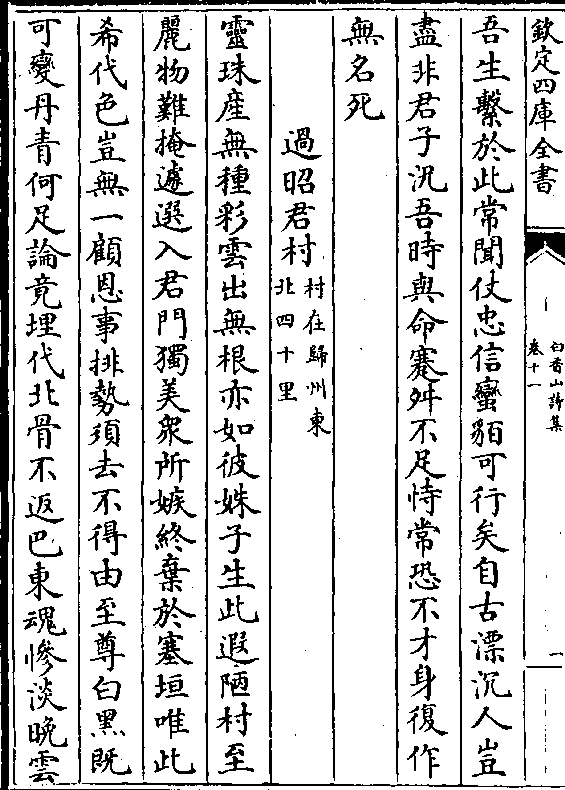 欽定四庫全書
白香山詩集
卷十一
一
吾生繫於此常聞仗忠信蠻貊可行矣自古漂沉人豈
盡非君子況吾時與命蹇舛不足恃常恐不才身復作
無名死
過昭君村村在歸州東
北四十里
靈珠産無種彩雲出無根亦如彼姝子生此遐陋村至
麗物難掩遽選入君門獨美衆所嫉終棄於塞垣唯此
希代色豈無一顧恩事排勢須去不得由至尊白黑既
可變丹青何足論竟埋代北骨不返巴東魂慘淡晚雲